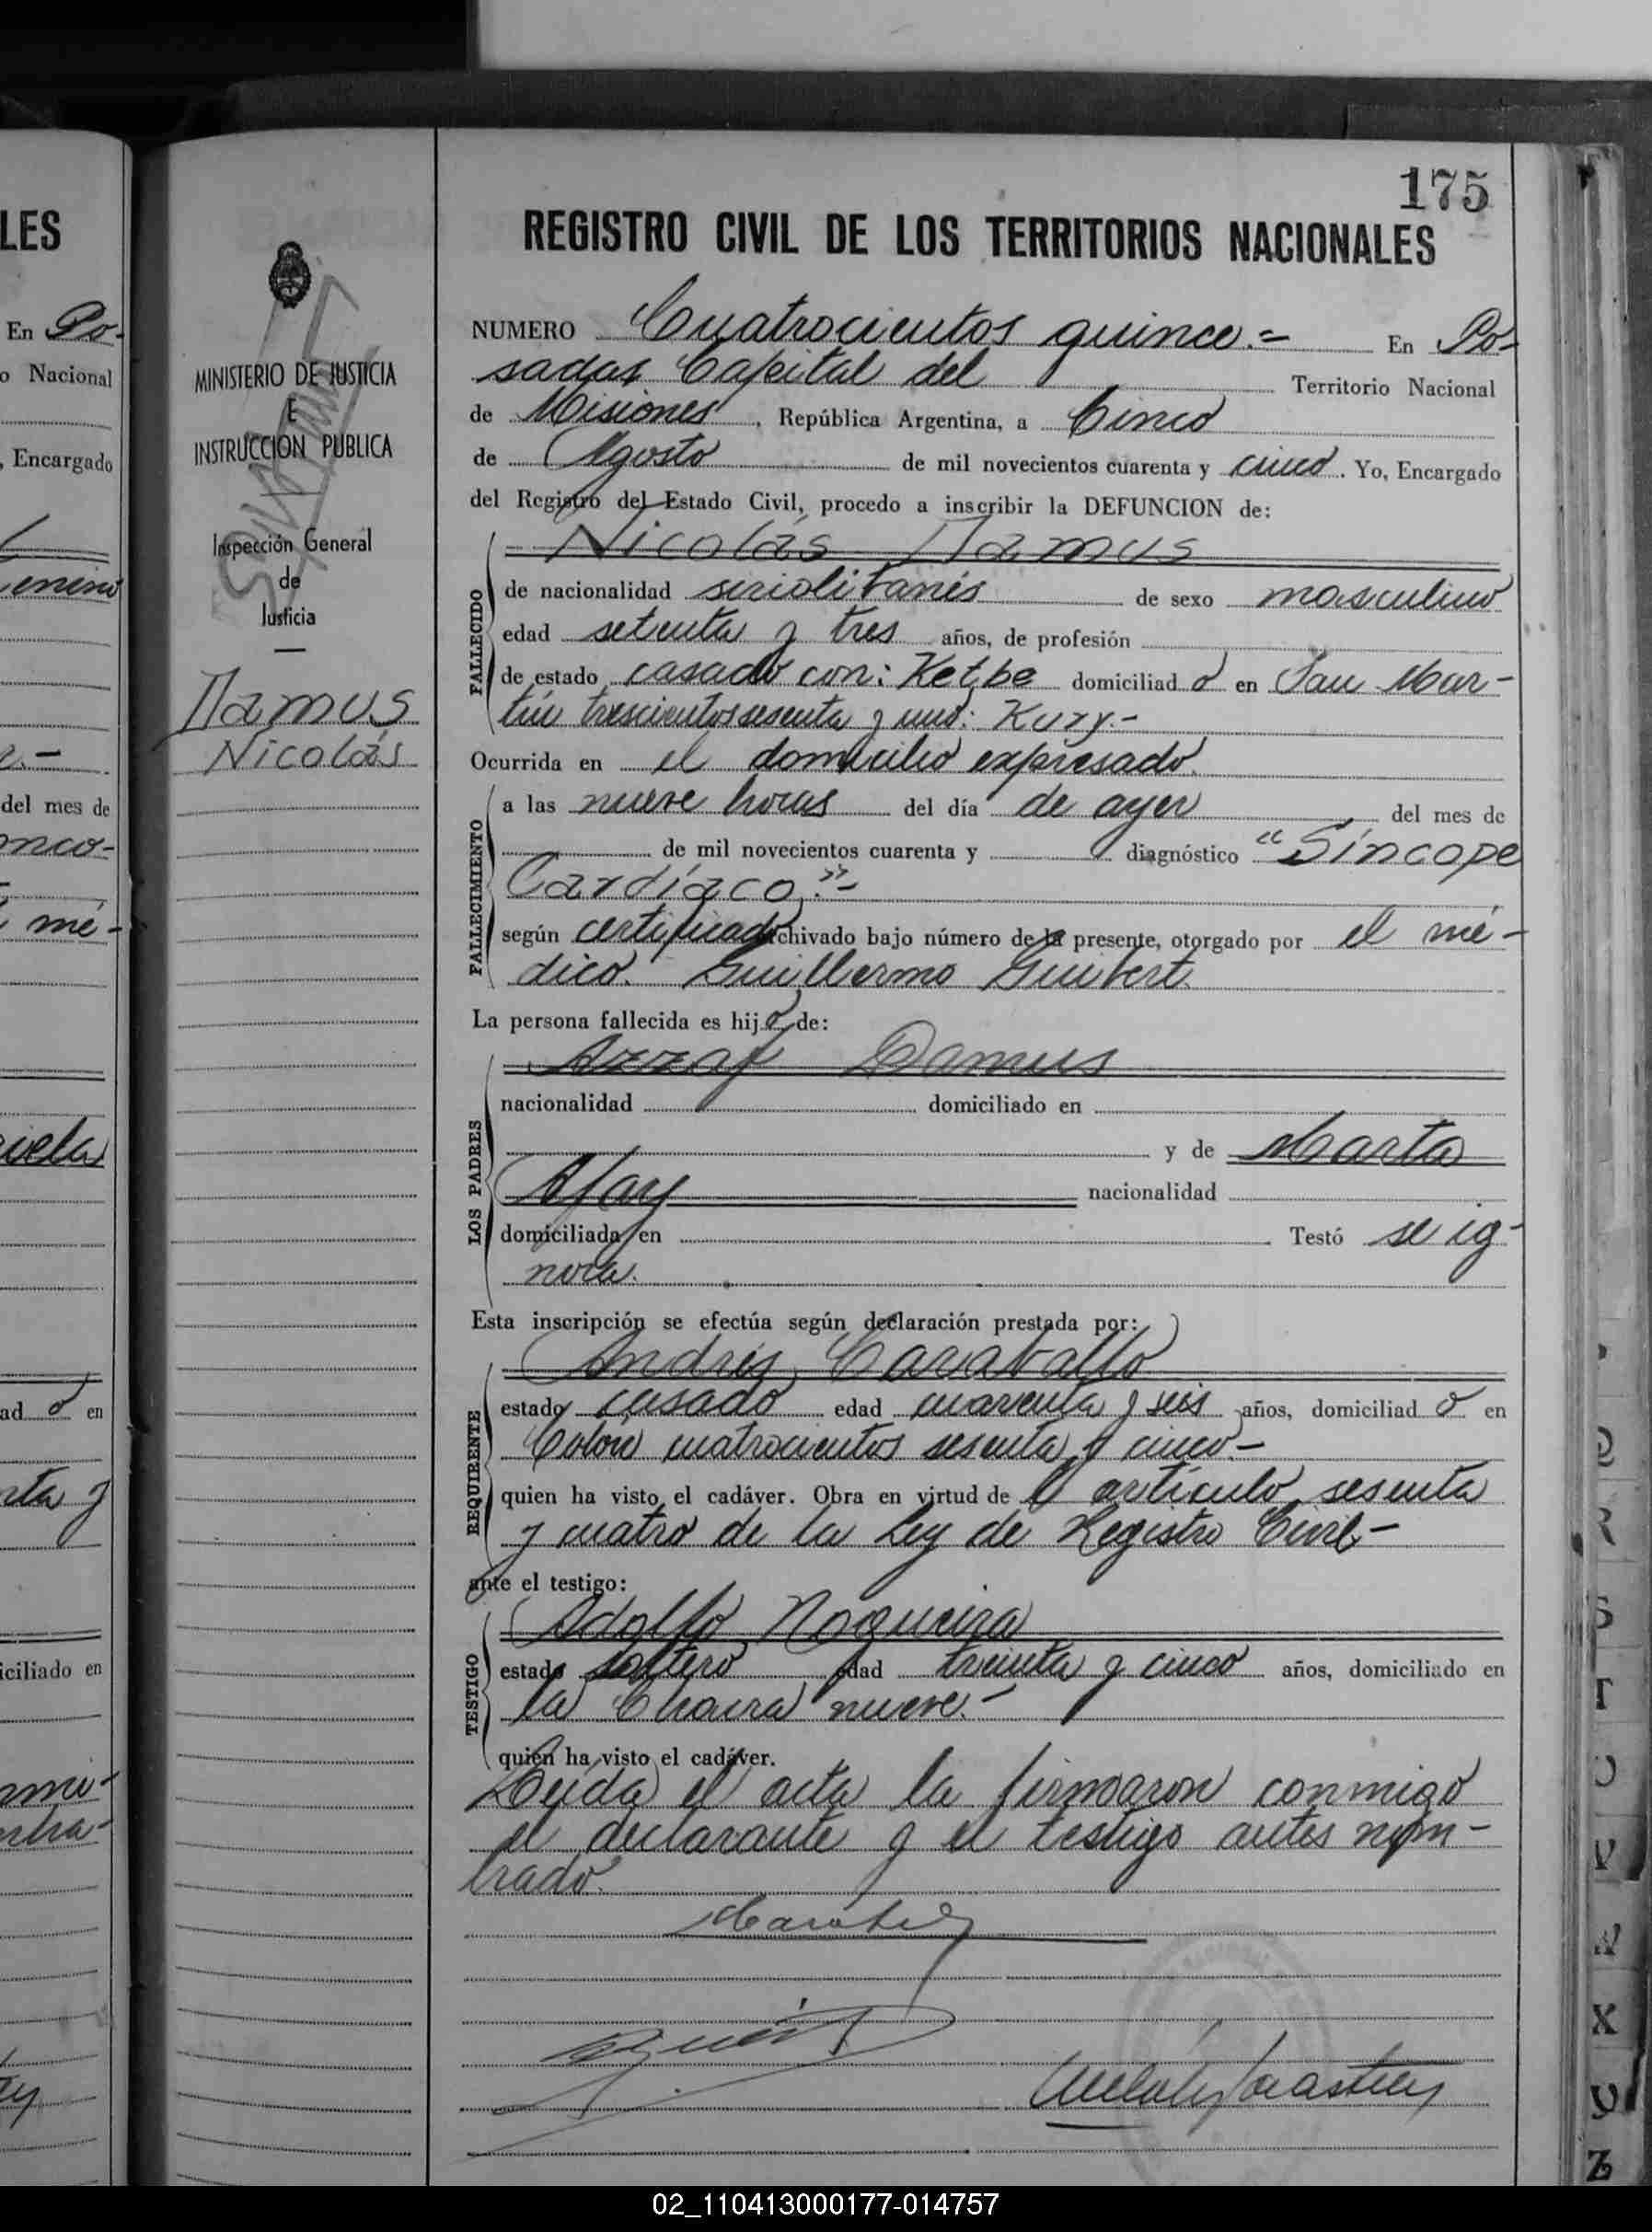 175
LES
REGISTRO CIVIL DE LOS TERRITORIOS NACIONALES
En Po-
o Nacional
, Encargado
enino
del mes de
mé-
ad o en
iciliado en
MINISTERIO DE JUSTICIA
E
INSTRUCCION PUBLICA
Inspección General
de
Justicia
Damus
Nicolás
NUMERO Cuatrocientos quince.= En Po-
sadas Capital del Territorio Nacional
de Misiones, República Argentina, a Cinco
de Agosto de mil novecientos cuarenta y cinco. Yo, Encargado
del Registro del Estado Civil, procedo a inscribir la DEFUNCION de:
Nicolás Damus
FALLECIDO
de nacionalidad siriolibanés de sexo masculino
edad setenta y tres años, de profesión
de estado casado con: Ketbe domiciliad o en San Mar-
tín trescientos sesenta y uno: Kury.-
Ocurrida en el domicilio expresado.
FALLECIMIENTO
a las nueve horas del día de ayer del mes de
de mil novecientos cuarenta y diagnóstico "Síncope
Cardíaco."-
según certificado archivado bajo número de la presente, otorgado por el mé-
dico. Guillermo Guibert.
La persona fallecida es hij o de:
LOS PADRES
Azzaf Damus
nacionalidad domiciliado en
y de Marta
Afay nacionalidad
domiciliada en Testó se ig-
nora.
Esta inscripción se efectúa según declaración prestada por:
REQUIRENTE
Andrés Caraballo
estado casado edad cuarenta y seis años, domiciliad o en
Colón cuatrocientos sesenta y cinco-
quien ha visto el cadáver. Obra en virtud de l artículo sesenta
y cuatro de la Ley de Registro Civil-
ante el testigo:
TESTIGO
Adolfo Nogueira
estado soltero edad treinta y cinco años, domiciliado en
la Chacra nueve.-
quien ha visto el cadáver.
Leída el acta la firmaron conmigo
el declarante y el testigo antes nom-
brado.
R
S
T
U
V
X
Y
Z
02_110413000177-014757